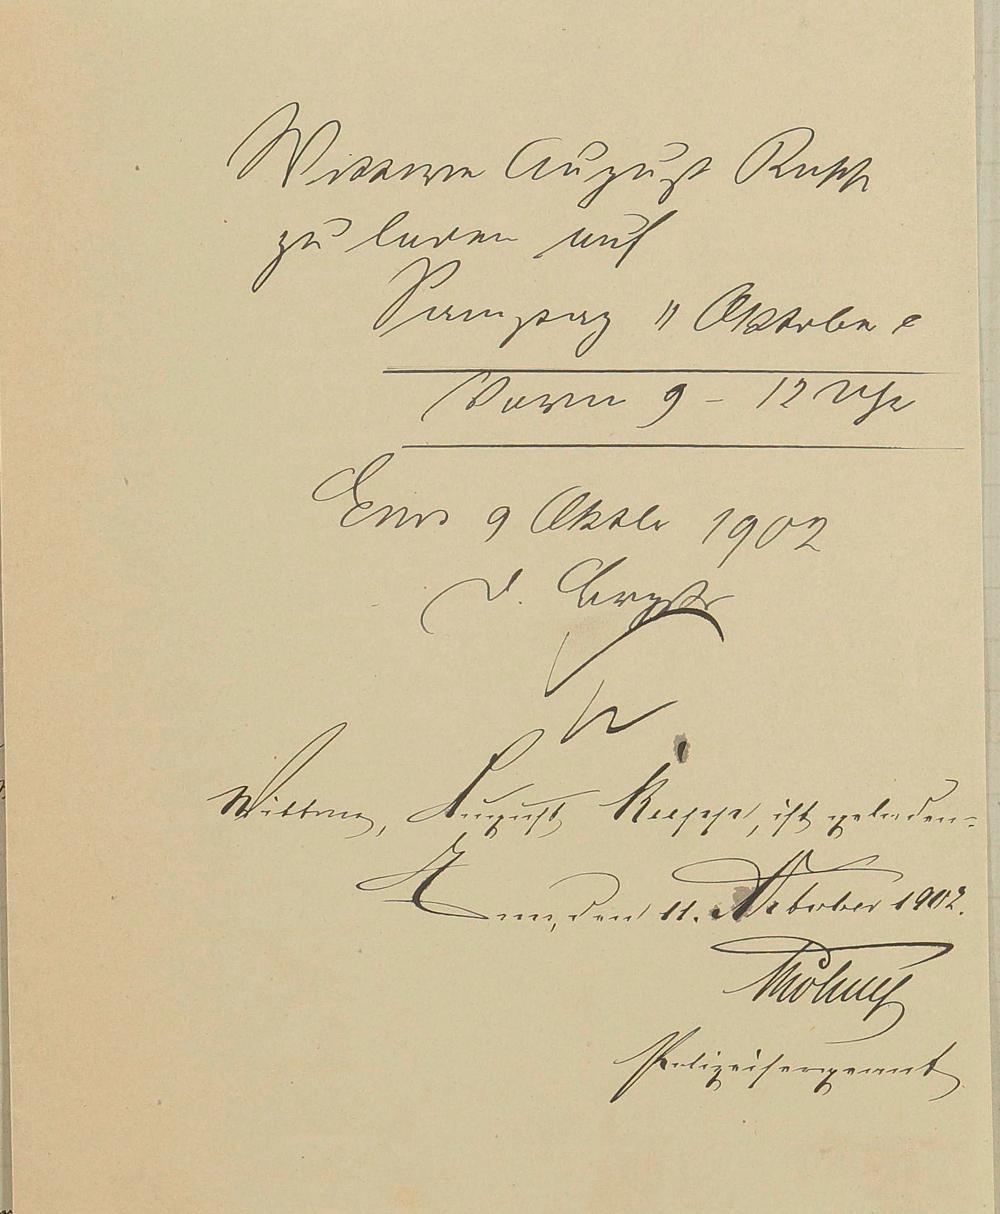 Wittwe August Rupp
zu laden auf
Samstag 11 Oktober c
Vorm 9 - 12 Uhr
Ems 9 Oktbr 1902
D. Brgstr
Wittwe, August Rupp, ist geladen.
Ems, den 11. Oktober 1902.
Polizeisergeant